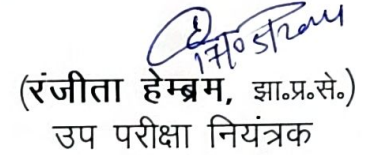 17/05/2024
(रंजीता हेम्ब्रम, झा॰प्र॰से॰)
उप परीक्षा नियंत्रक